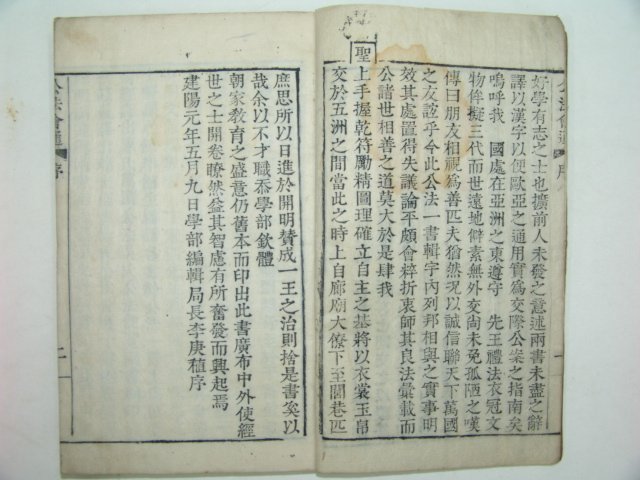 好學有志之士也擴前人未發之意述兩書未盡之辭
譯以漢字以便歐亞之通用實爲交際公案之指南矣
嗚呼我 國處在亞洲之東遵守 先王禮法衣冠文
物侔擬三代而世遠地僻素無外交尙未免孤陋之嘆
傳曰朋友相視爲善匹夫猶然況以誠信聯天下萬國
之友誼乎今此公法一書輯宇內列邦相與之實事明
效其處置得失議論平頗會粹折衷師其良法彙載而
公諸世相善之道莫大於是肆我
聖
上手握乾符勵精圖理確立自主之基將以衣裳玉帛
交於五洲之間當此之時上自廊廟大僚下至閭巷匹
庶思所以日進於開明贊成一王之治則捨是書奚以
哉余以不才職忝學部欽體
朝家敎育之盛意仍舊本而印出此書廣布中外使經
世之士開卷瞭然益其智慮有所奮發而興起焉
建陽元年五月九日學部編輯局長李庚稙序
公法會通 序 二